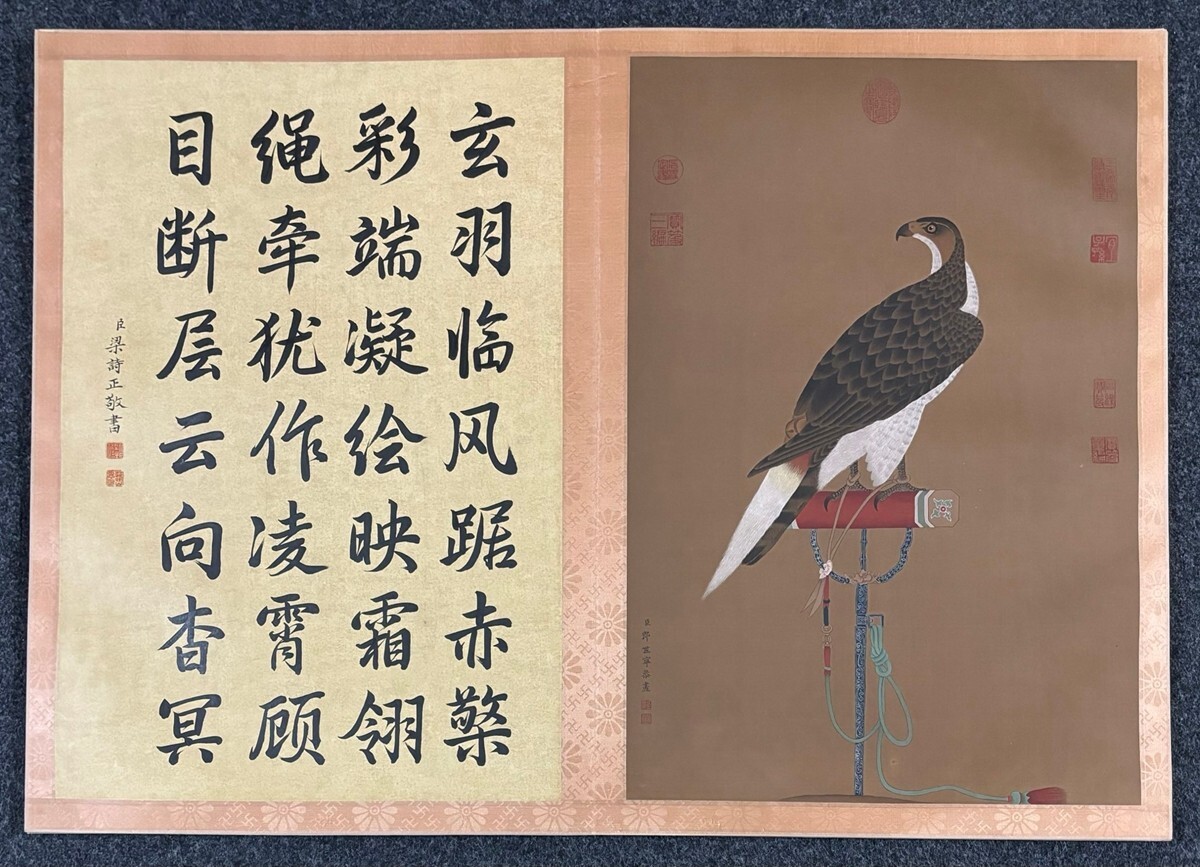 玄羽临风踞赤檠
彩端凝绘映霜翎
绳牵犹作凌霄顾
目断层云向杳冥
臣梁詩正敬書
臣郎世寧恭畫